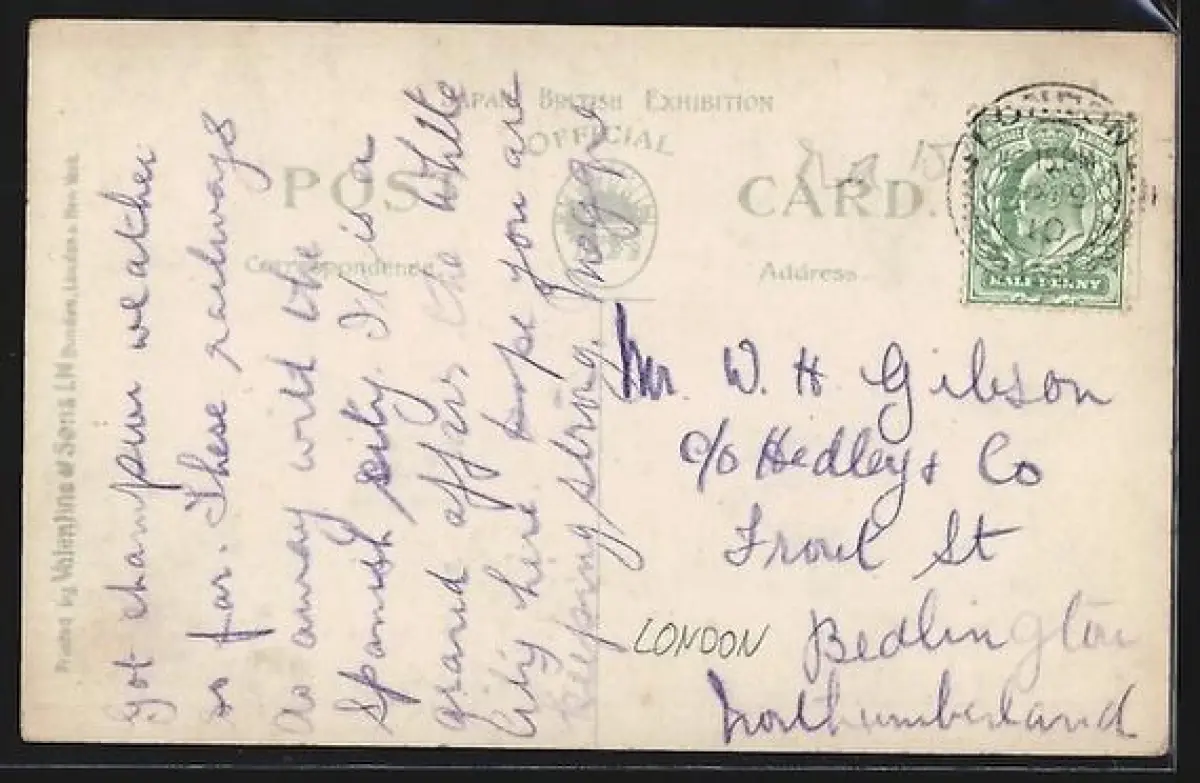 JAPAN BRITISH EXHIBITION
OFFICIAL
POST CARD.
Correspondence
Address
Printed by Valentine & Sons Ltd Dundee, London & New York
Got champion weather
so far. These railways
do away with the
Spanish city. It is a
grand affair, the White
City here hope you are
keeping strong. Meggie
LONDON
10
HALF PENNY
Mr. W. H. Gibson
c/o Hedley & Co
Front St
Bedlington
Northumberland
LONDON